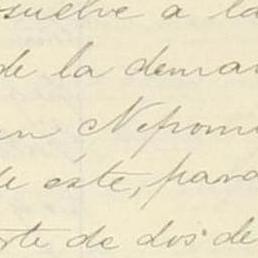 suelve a la
de la deman
an Nepomu
de éste, para
orte de dos de